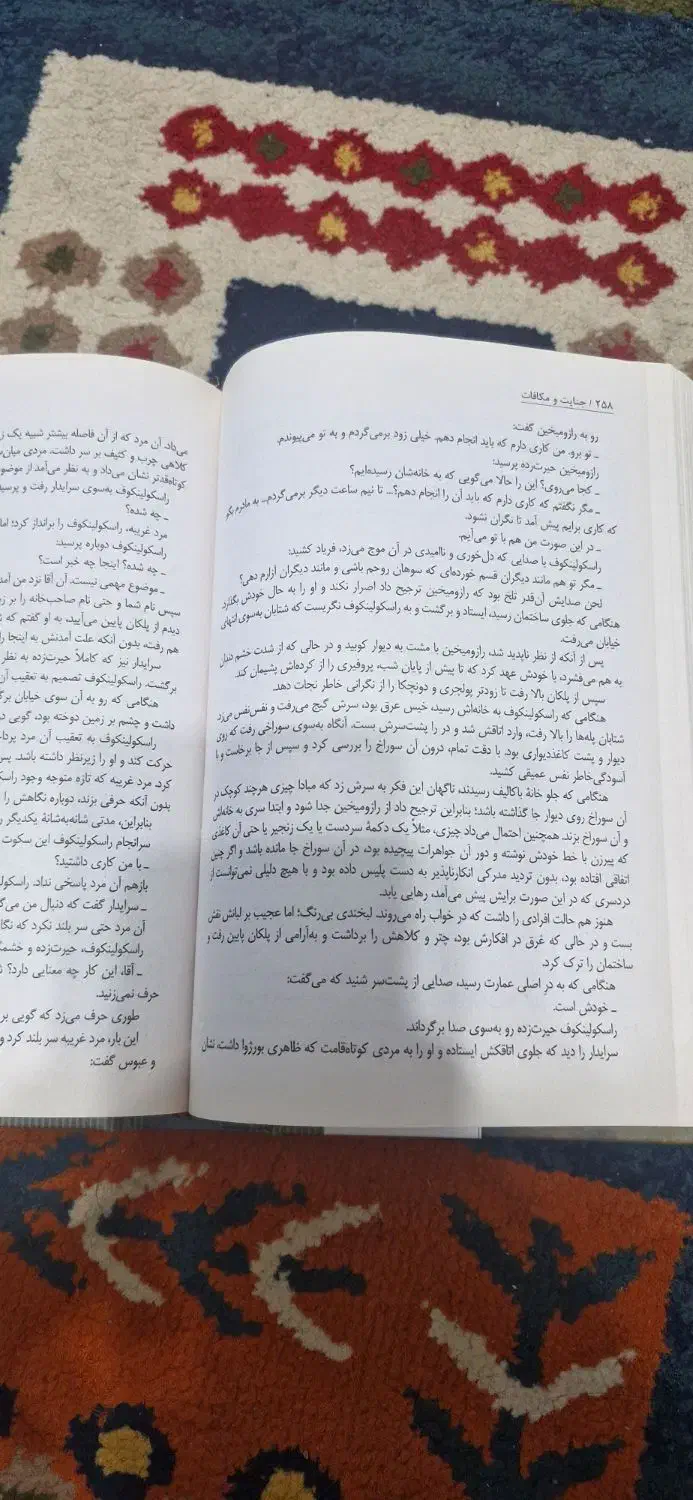 ۲۵۸ / جنایت و مکافات
رو به رازومیخین گفت:
ـ تو برو. من کاری دارم که باید انجام دهم. خیلی زود برمی‌گردم و به تو می‌پیوندم.
رازومیخین حیرت‌زده پرسید:
ـ کجا می‌روی؟ این را حالا می‌گویی که به خانه‌شان رسیده‌ایم؟
ـ مگر نگفتم که کاری دارم که باید آن را انجام دهم؟... تا نیم ساعت دیگر برمی‌گردم... به مادرم بگو
که کاری برایم پیش آمد تا نگران نشود.
ـ در این صورت من هم با تو می‌آیم.
راسکولینکوف با صدایی که دل‌خوری و ناامیدی در آن موج می‌زد، فریاد کشید:
ـ مگر تو هم مانند دیگران قسم خورده‌ای که سوهان روحم باشی و مانند دیگران آزارم دهی؟
لحن صدایش آن‌قدر تلخ بود که رازومیخین ترجیح داد اصرار نکند و او را به حال خودش بگذارد.
هنگامی که جلوی ساختمان رسید، ایستاد و برگشت و به راسکولینکوف نگریست که شتابان به‌سوی انتهای
خیابان می‌رفت.
پس از آنکه از نظر ناپدید شد، رازومیخین با مشت به دیوار کوبید و در حالی که از شدت خشم دندان
به هم می‌فشرد، با خودش عهد کرد که تا پیش از پایان شب، پروفیری را از کرده‌اش پشیمان کند.
سپس از پلکان بالا رفت تا زودتر پولچری و دونچکا را از نگرانی خاطر نجات دهد.
هنگامی که راسکولینکوف به خانه‌اش رسید، خیس عرق بود، سرش گیج می‌رفت و نفس‌نفس می‌زد.
شتابان پله‌ها را بالا رفت، وارد اتاقش شد و در را پشت‌سرش بست. آنگاه به‌سوی سوراخی رفت که روی
دیوار و پشت کاغذدیواری بود. با دقت تمام، درون آن سوراخ را بررسی کرد و سپس از جا برخاست و با
آسودگی‌خاطر نفس عمیقی کشید.
هنگامی که جلو خانهٔ باکالیف رسیدند، ناگهان این فکر به سرش زد که مبادا چیزی هرچند کوچک در
آن سوراخ روی دیوار جا گذاشته باشد؛ بنابراین ترجیح داد از رازومیخین جدا شود و ابتدا سری به خانه‌اش
و آن سوراخ بزند. همچنین احتمال می‌داد چیزی، مثلاً یک دکمهٔ سردست یا یک زنجیر یا حتی آن کاغذی
که پیرزن با خط خودش نوشته و دور آن جواهرات پیچیده بود، در آن سوراخ جا مانده باشد و اگر چنین
اتفاقی افتاده بود، بدون تردید مدرکی انکارناپذیر به دست پلیس داده بود و با هیچ دلیلی نمی‌توانست از
دردسری که در این صورت برایش پیش می‌آمد، رهایی یابد.
هنوز هم حالت افرادی را داشت که در خواب راه می‌روند. لبخندی بی‌رنگ؛ اما عجیب بر لبانش نقش
بست و در حالی که غرق در افکارش بود، چتر و کلاهش را برداشت و به‌آرامی از پلکان پایین رفت و
ساختمان را ترک کرد.
هنگامی که به درِ اصلی عمارت رسید، صدایی از پشت‌سر شنید که می‌گفت:
ـ خودش است.
راسکولینکوف حیرت‌زده رو به‌سوی صدا برگرداند.
سرایدار را دید که جلوی اتاقکش ایستاده و او را به مردی کوتاه‌قامت که ظاهری بورژوا داشت، نشان
می‌داد. آن مرد که از آن فاصله بیشتر شبیه یک
کلاهی چرب و کثیف بر سر داشت. مردی
کوتاه‌قدتر نشان می‌داد و به نظر می‌آمد از
راسکولینکوف به‌سوی سرایدار رفت و
ـ چه شده؟
مرد غریبه، راسکولینکوف را برانداز کرد؛ اما
راسکولینکوف دوباره پرسید:
ـ چه شده؟ اینجا چه خبر است؟
ـ موضوع مهمی نیست. آن آقا نزد من
سپس نام شما و حتی نام صاحب‌خانه را بر
دیدم از پلکان پایین می‌آیید، به او گفتم که
هم رفت، بدون آنکه علت آمدنش به اینجا را
سرایدار نیز که کاملاً حیرت‌زده به نظر
برگشت. راسکولینکوف تصمیم به تعقیب آن
هنگامی که رو به آن سوی خیابان
داشت و چشم بر زمین دوخته بود، گویی در
راسکولینکوف به تعقیب آن مرد
حرکت کند و او را زیرنظر داشته باشد. پس
کرد. مرد غریبه که تازه متوجه وجود
بدون آنکه حرفی بزند، دوباره نگاهش را
بنابراین، مدتی شانه‌به‌شانهٔ یکدیگر
سرانجام راسکولینکوف این سکوت
ـ با من کاری داشتید؟
بازهم آن مرد پاسخی نداد.
ـ سرایدار گفت که دنبال من
آن مرد حتی سر بلند نکرد که
راسکولینکوف، حیرت‌زده و
ـ آقا، این کار چه معنایی دارد؟
حرف نمی‌زنید.
طوری حرف می‌زد که گویی
این بار، مرد غریبه سر بلند کرد و
و عبوس گفت: